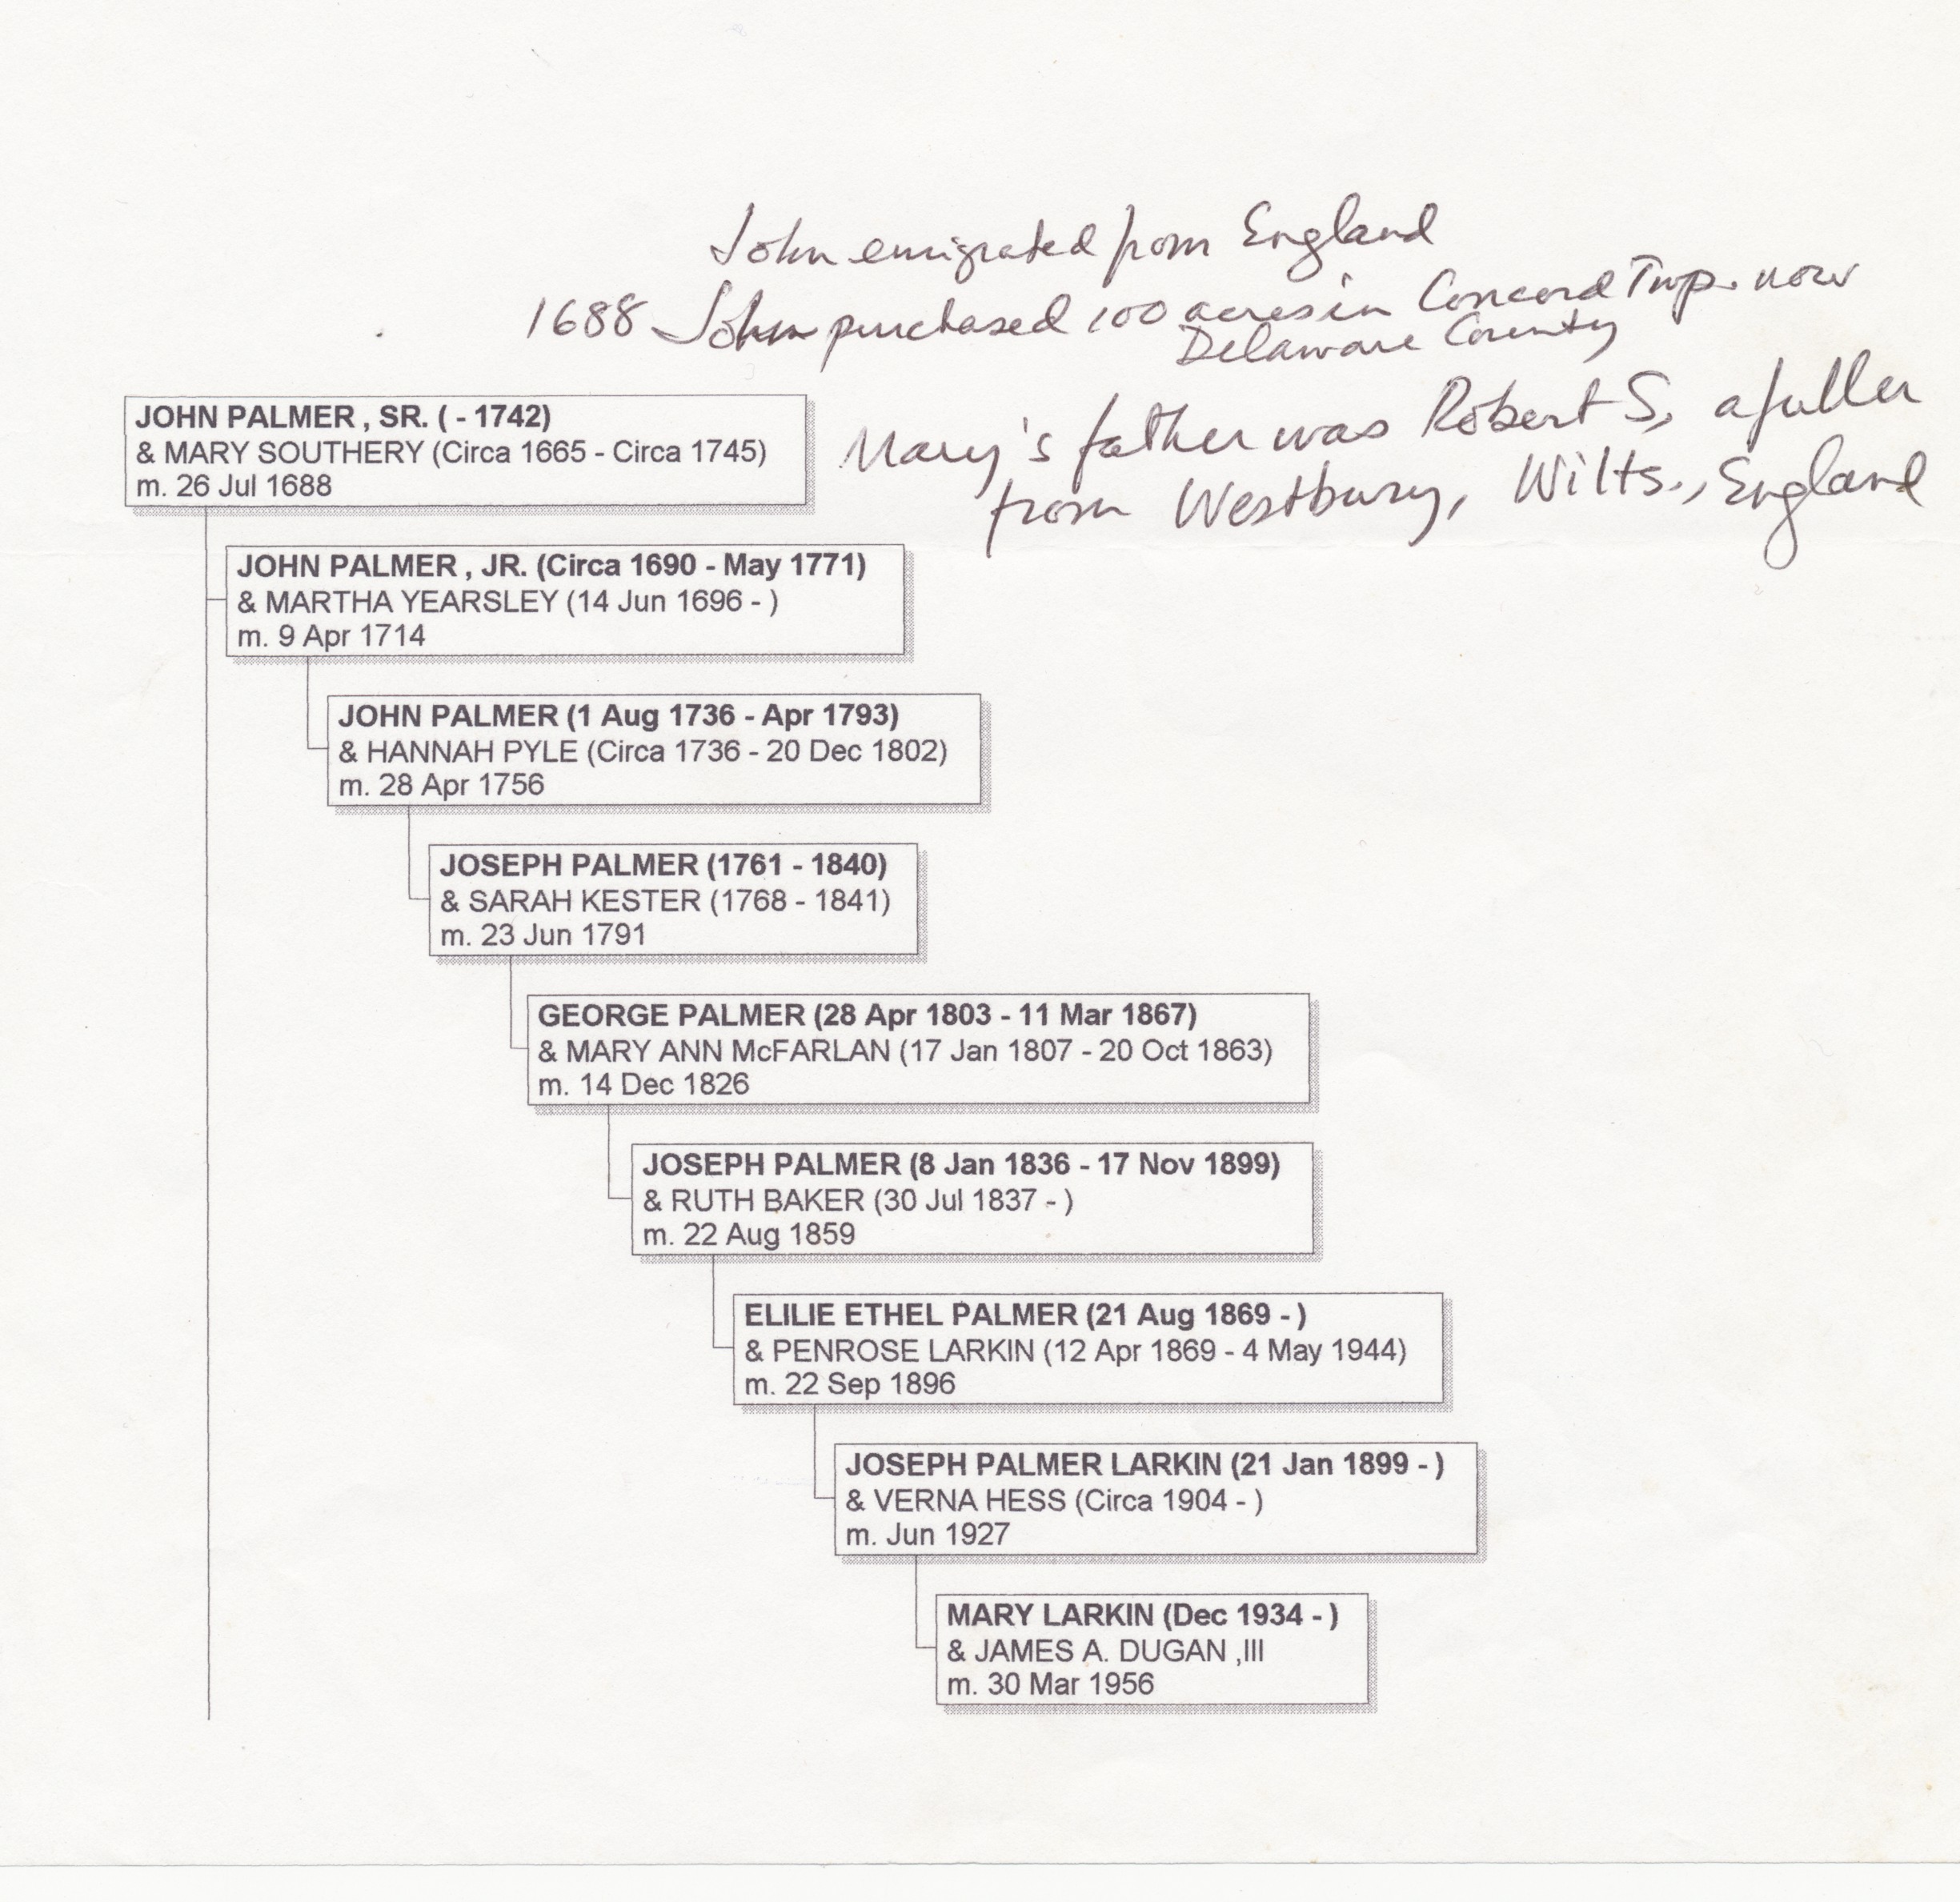 John emigrated from England
1688 John purchased 100 acres in Concord Twp. now
Delaware County
Mary's father was Robert S., a fuller
from Westbury, Wilts., England
JOHN PALMER , SR. ( - 1742)
& MARY SOUTHERY (Circa 1665 - Circa 1745)
m. 26 Jul 1688
JOHN PALMER , JR. (Circa 1690 - May 1771)
& MARTHA YEARSLEY (14 Jun 1696 - )
m. 9 Apr 1714
JOHN PALMER (1 Aug 1736 - Apr 1793)
& HANNAH PYLE (Circa 1736 - 20 Dec 1802)
m. 28 Apr 1756
JOSEPH PALMER (1761 - 1840)
& SARAH KESTER (1768 - 1841)
m. 23 Jun 1791
GEORGE PALMER (28 Apr 1803 - 11 Mar 1867)
& MARY ANN McFARLAN (17 Jan 1807 - 20 Oct 1863)
m. 14 Dec 1826
JOSEPH PALMER (8 Jan 1836 - 17 Nov 1899)
& RUTH BAKER (30 Jul 1837 - )
m. 22 Aug 1859
ELILIE ETHEL PALMER (21 Aug 1869 - )
& PENROSE LARKIN (12 Apr 1869 - 4 May 1944)
m. 22 Sep 1896
JOSEPH PALMER LARKIN (21 Jan 1899 - )
& VERNA HESS (Circa 1904 - )
m. Jun 1927
MARY LARKIN (Dec 1934 - )
& JAMES A. DUGAN ,III
m. 30 Mar 1956